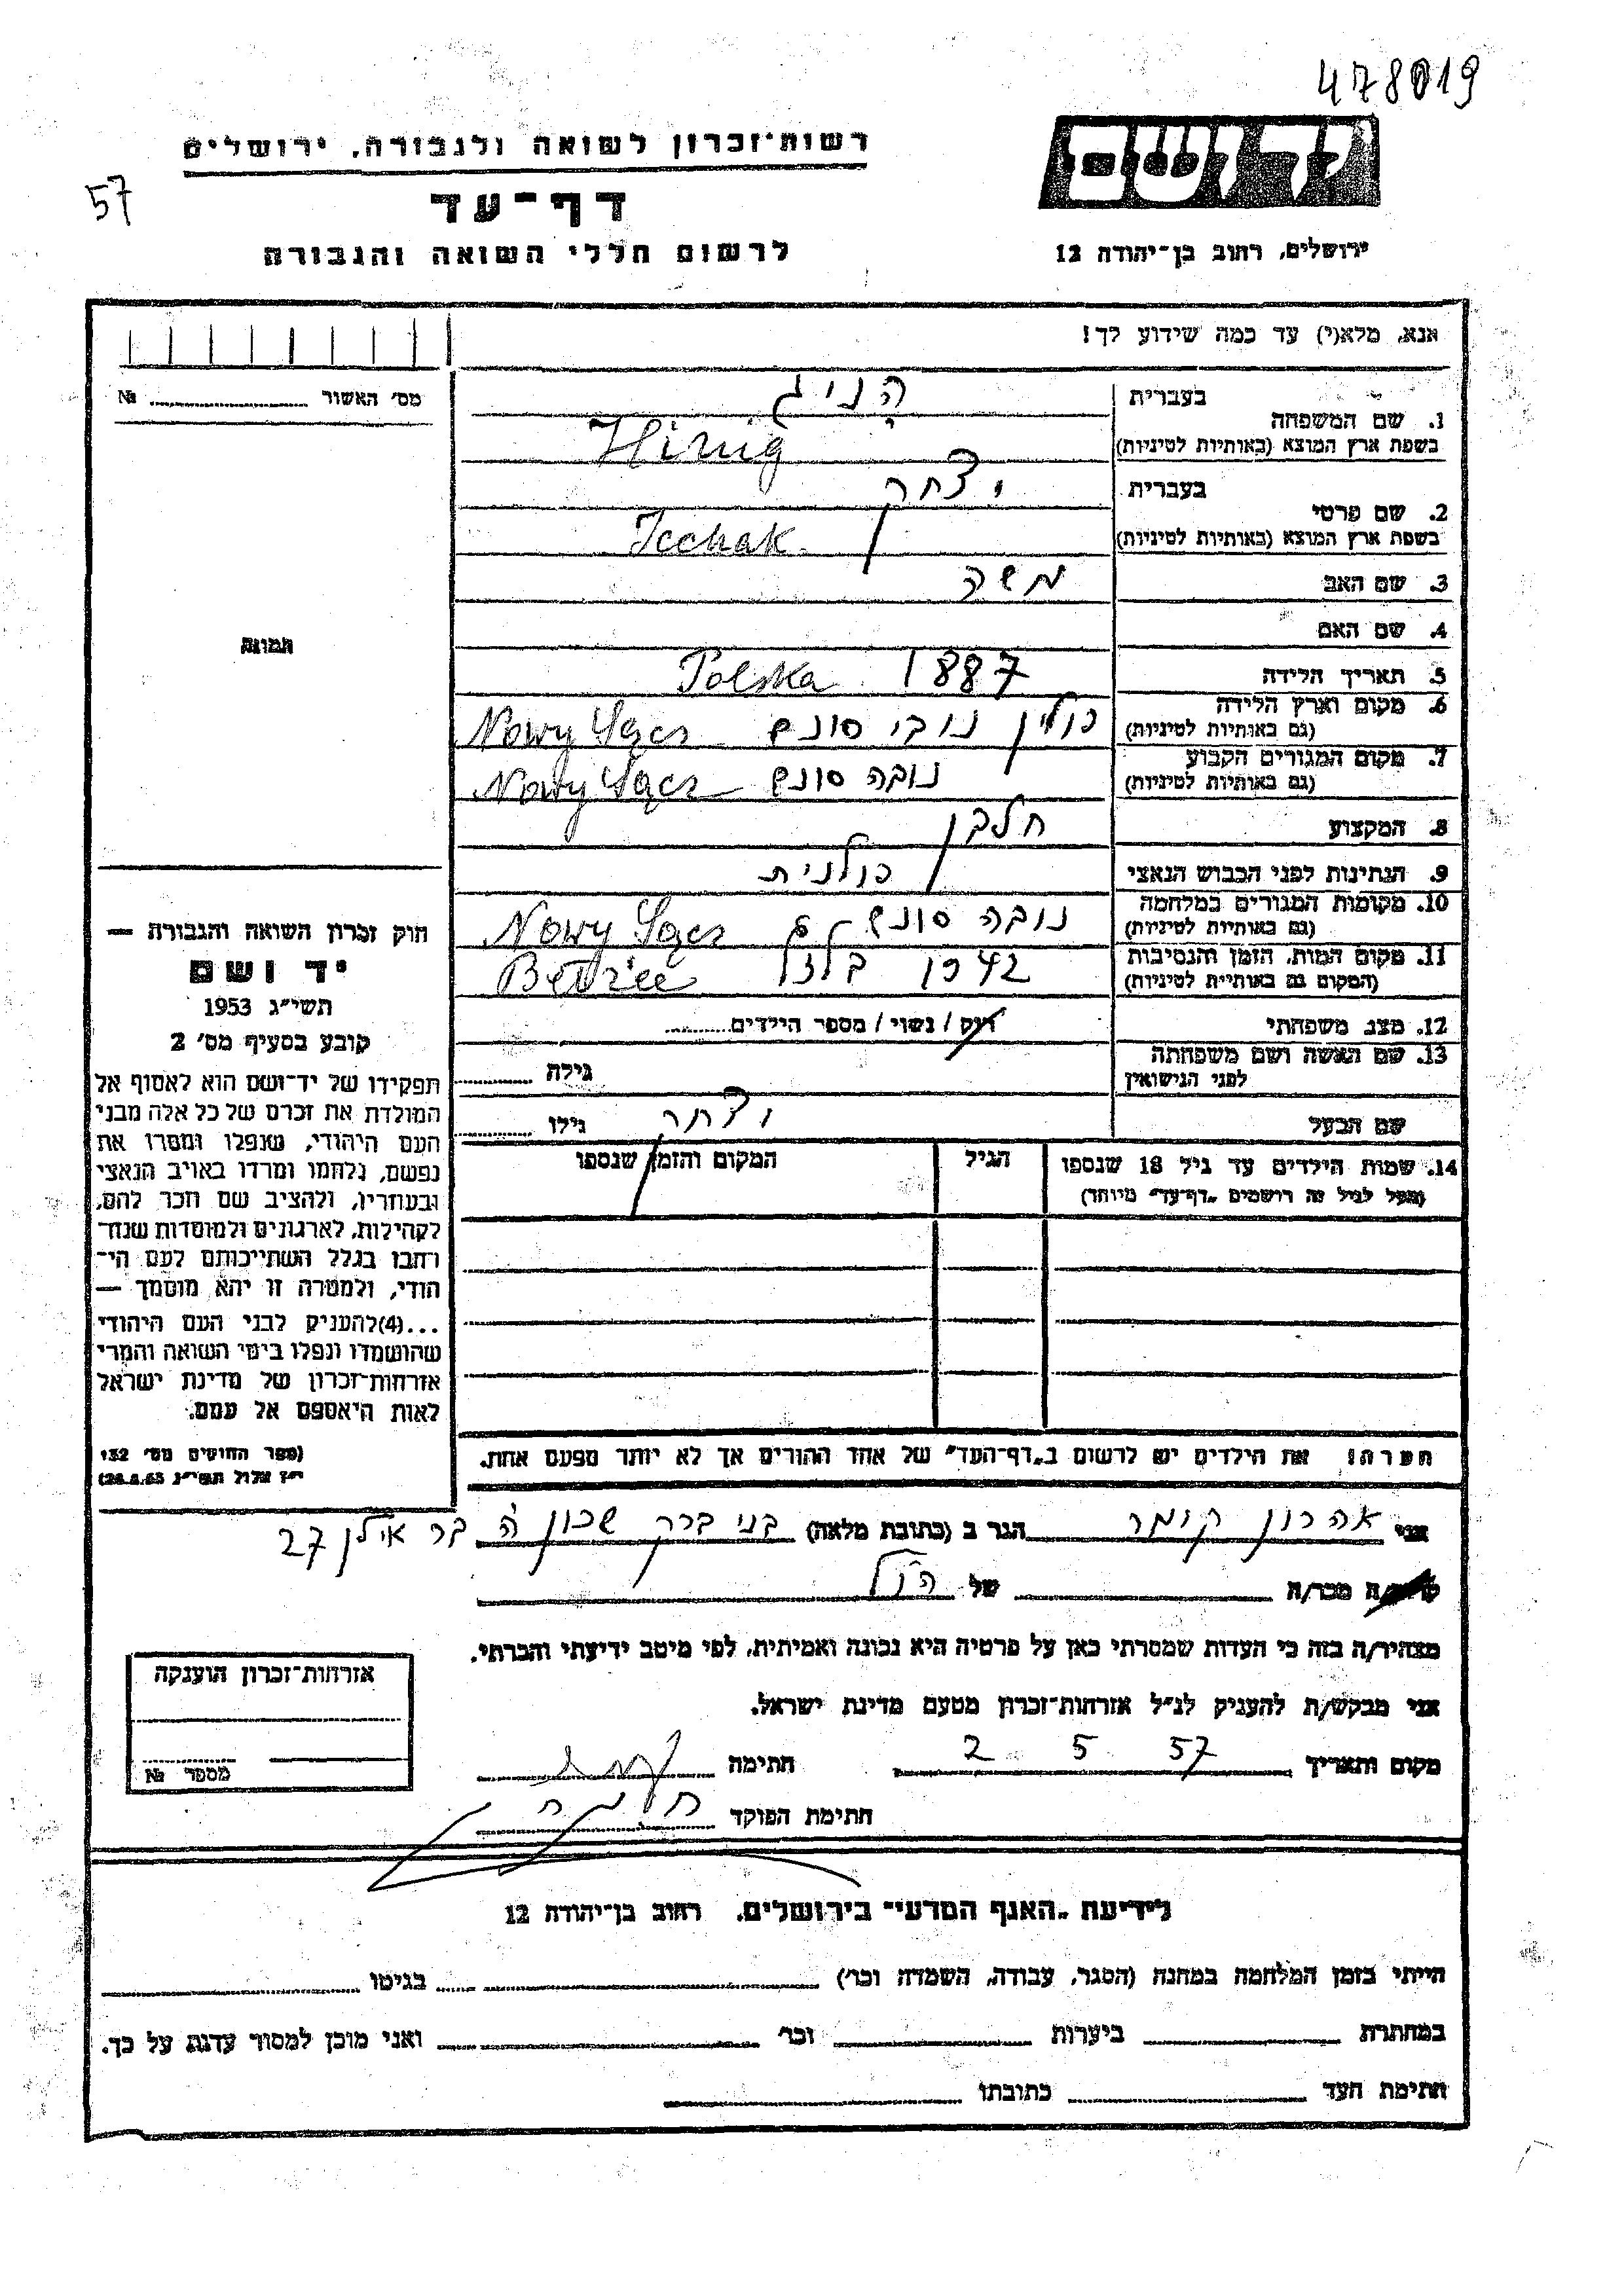 478019
57
רשות־זכרון לשואה ולגבורה, ירושלים
יד ושם
דף־עד
לרשום חללי השואה והגבורה
ירושלים, רחוב בן־יהודה 12
אנא, מלא(י) עד כמה שידוע לך!
מס׳ האשור № 
1. שם המשפחה
בעברית הניג
בשפת ארץ המוצא (באותיות לטיניות) Hinig
2. שם פרטי
בעברית יצחק
בשפת ארץ המוצא (באותיות לטיניות) Icchak
3. שם האב משה
4. שם האם
5. תאריך הלידה 1887 Polska
6. מקום וארץ הלידה (גם באותיות לטיניות) פולין נובי סונש Nowy Sącz
7. מקום המגורים הקבוע (גם באותיות לטיניות) נובה סונש Nowy Sącz
8. המקצוע חלבן
9. הנתינות לפני הכבוש הנאצי פולנית
10. מקומות המגורים במלחמה (גם באותיות לטיניות) נובה סונש Nowy Sącz
11. מקום המות, הזמן והנסיבות (המקום גם באותיות לטיניות) 1942 בלזץ
12. מצב משפחתי רוק / נשוי / מספר הילדים
13. שם האשה ושם משפחתה לפני הנישואין גילה
שם הבעל יצחק גילו
14. שמות הילדים עד גיל 18 שנספו
(מעל לגיל זה רושמים "דף־עד" מיוחד)
הגיל
המקום והזמן שנספו
תמונה
חוק זכרון השואה והגבורה —
יד ושם
תשי"ג 1953
קובע בסעיף מס׳ 2
תפקידו של יד־ושם הוא לאסוף אל
המולדת את זכרם של כל אלה מבני
העם היהודי, שנפלו ומסרו את
נפשם, נלחמו ומרדו באויב הנאצי
ובעוזריו, ולהציב שם וזכר להם,
לקהילות, לארגונים ולמוסדות שנח־
רבו בגלל השתייכותם לעם הי־
הודי, ולמטרה זו יהא מוסמך —
...(4)להעניק לבני העם היהודי
שהושמדו ונפלו בימי השואה והמרי
אזרחות־זכרון של מדינת ישראל
לאות היאספם אל עמם.
(ספר החוקים מס׳ 132
הערה! את הילדים יש לרשום ב"דף־העד" של אחד ההורים אך לא יותר מפעם אחת.
אני אהרון קומר הגר ב (כתובת מלאה) בני ברק שכון ה׳ בר אילן 27
מכר/ה של הנ"ל
מצהיר/ה בזה כי העדות שמסרתי כאן על פרטיה היא נכונה ואמיתית, לפי מיטב ידיעתי והכרתי.
אני מבקש/ת להעניק לנ"ל אזרחות־זכרון מטעם מדינת ישראל.
מקום ותאריך 2 5 57 חתימה
חתימת הפוקד
אזרחות־זכרון הוענקה
מספר №
לידיעת "האגף המדעי" בירושלים, רחוב בן־יהודה 12
הייתי בזמן המלחמה במחנה (הסגר, עבודה, השמדה וכו׳) בגיטו
במחתרת ביערות וכו׳ ואני מוכן למסור עדות על כך.
חתימת העד כתובתו